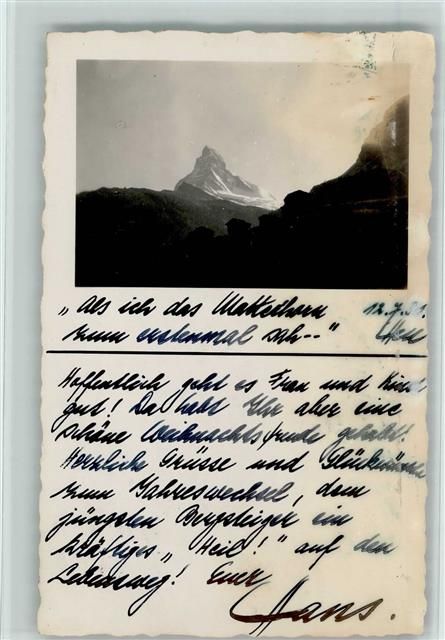 „Als ich das Matterhorn 12.7.31.
zum erstenmal sah--"
Hoffentlich geht es Frau und Kind
gut! Da habt Ihr aber eine
schöne Weihnachtsfreude gehabt.
Herzliche Grüsse und Glückwünsche
zum Jahreswechsel, dem
jüngsten Bergsteiger ein
kräftiges „Heil!" auf den
Lebensweg! Euer
Hans.